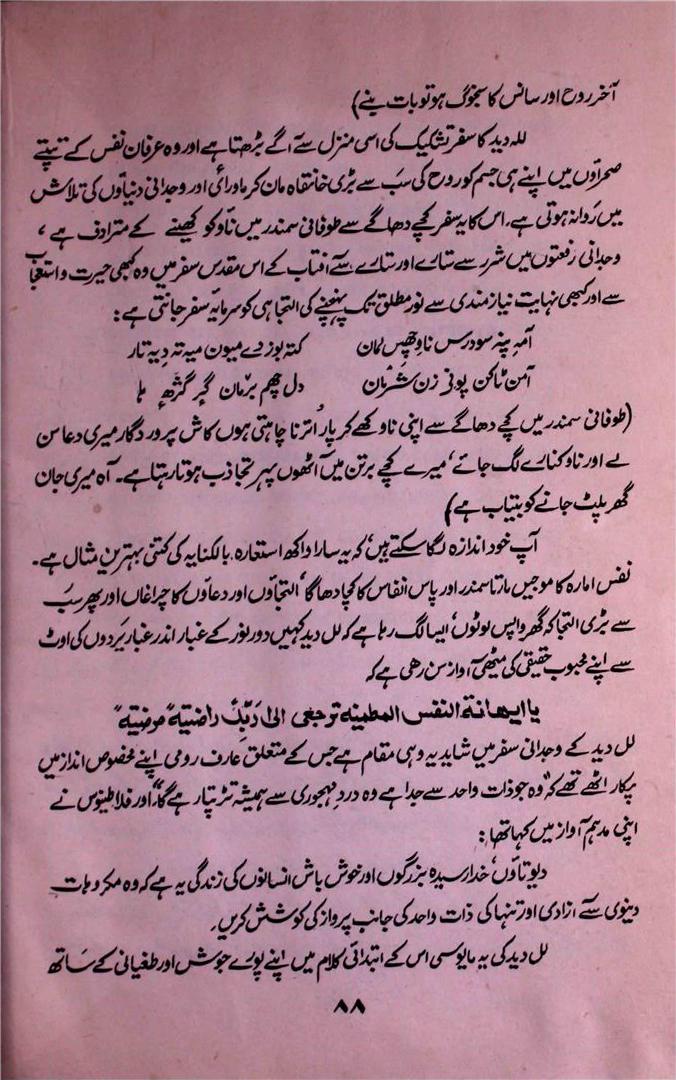 آخر روح اور سانس کا سنجوگ ہو تو بات بنے)
للہ دید کا سفر تشکیک کی اسی منزل سے آگے بڑھتا ہے اور وہ عرفان نفس کے تپتے
صحراؤں میں اپنے ہی جسم کو روح کی سب سے بڑی خانقاہ مان کر ماورائی اور وجدانی دنیاؤں کی تلاش
میں روانہ ہوتی ہے، اس کا یہ سفر کچے دھاگے سے طوفانی سمندر میں ناؤ کو کھینے کے مترادف ہے،
وجدانی رفعتوں میں شرر سے ستارے اور ستارے سے آفتاب کے اس مقدس سفر میں وہ کبھی حیرت و استعجاب
سے اور کبھی نہایت نیازمندی سے نور مطلق تک پہنچنے کی التجا ہی کو سرمایہ سفر جانتی ہے:
آمہ پنہ سودرس ناوِ چھس لمان کتہ بوزِ دے میون میہ تہ دِیہ تار
آمن ٹاکن پونی زن شرمان دل چھم برمان گرٕ گژھٕ ہا
(طوفانی سمندر میں کچے دھاگے سے اپنی ناو کھے کر پار اترنا چاہتی ہوں کاش پروردگار میری دعا سن
لے اور ناو کنارے لگ جائے، میرے کچے برتن میں آٹھوں پہر تجاذب ہوتا رہتا ہے۔ آہ میری جان
گھر پلٹ جانے کو بیتاب ہے)
آپ خود اندازہ لگا سکتے ہیں، کہ یہ سارا واکھ استعارہ بالکنایہ کی کتنی بہترین مثال ہے۔
نفس امارہ کا موجیں مارتا سمندر اور پاس انفاس کا کچا دھاگا، التجاؤں اور دعاؤں کا چراغاں اور پھر سب
سے بڑی التجا کہ گھر واپس لوٹوں، ایسا لگ رہا ہے کہ لل دید کہیں دور نور کے غبار اندر غبار پردوں کی اوٹ
سے اپنے محبوب حقیقی کی میٹھی آواز سن رہی ہے کہ
یا ایھانۃ النفس المطمینہ ترجعی الیٰ ربِّک راضتیہ" مرضتیہ"
لل دید کے وجدانی سفر میں شاید یہ وہی مقام ہے جس کے متعلق عارف رومی اپنے مخصوص انداز میں
پکار اٹھے تھے کہ "وہ جو ذات واحد سے جدا ہے وہ دردِ مہجوری سے ہمیشہ تڑپتا رہے گا"، اور فلاطینوس نے
اپنی مدہم آواز میں کہا تھا:
دیوتاؤں، خدا رسیدہ بزرگوں اور خوش باش انسانوں کی زندگی یہ ہے کہ وہ مکروہات
دینوی سے آزادی اور تنہا کی ذات واحد کی جانب پرواز کی کوشش کریں۔
لل دید کی یہ مایوسی اس کے ابتدائی کلام میں اپنے پورے جوش اور طغیانی کے ساتھ
۸۸